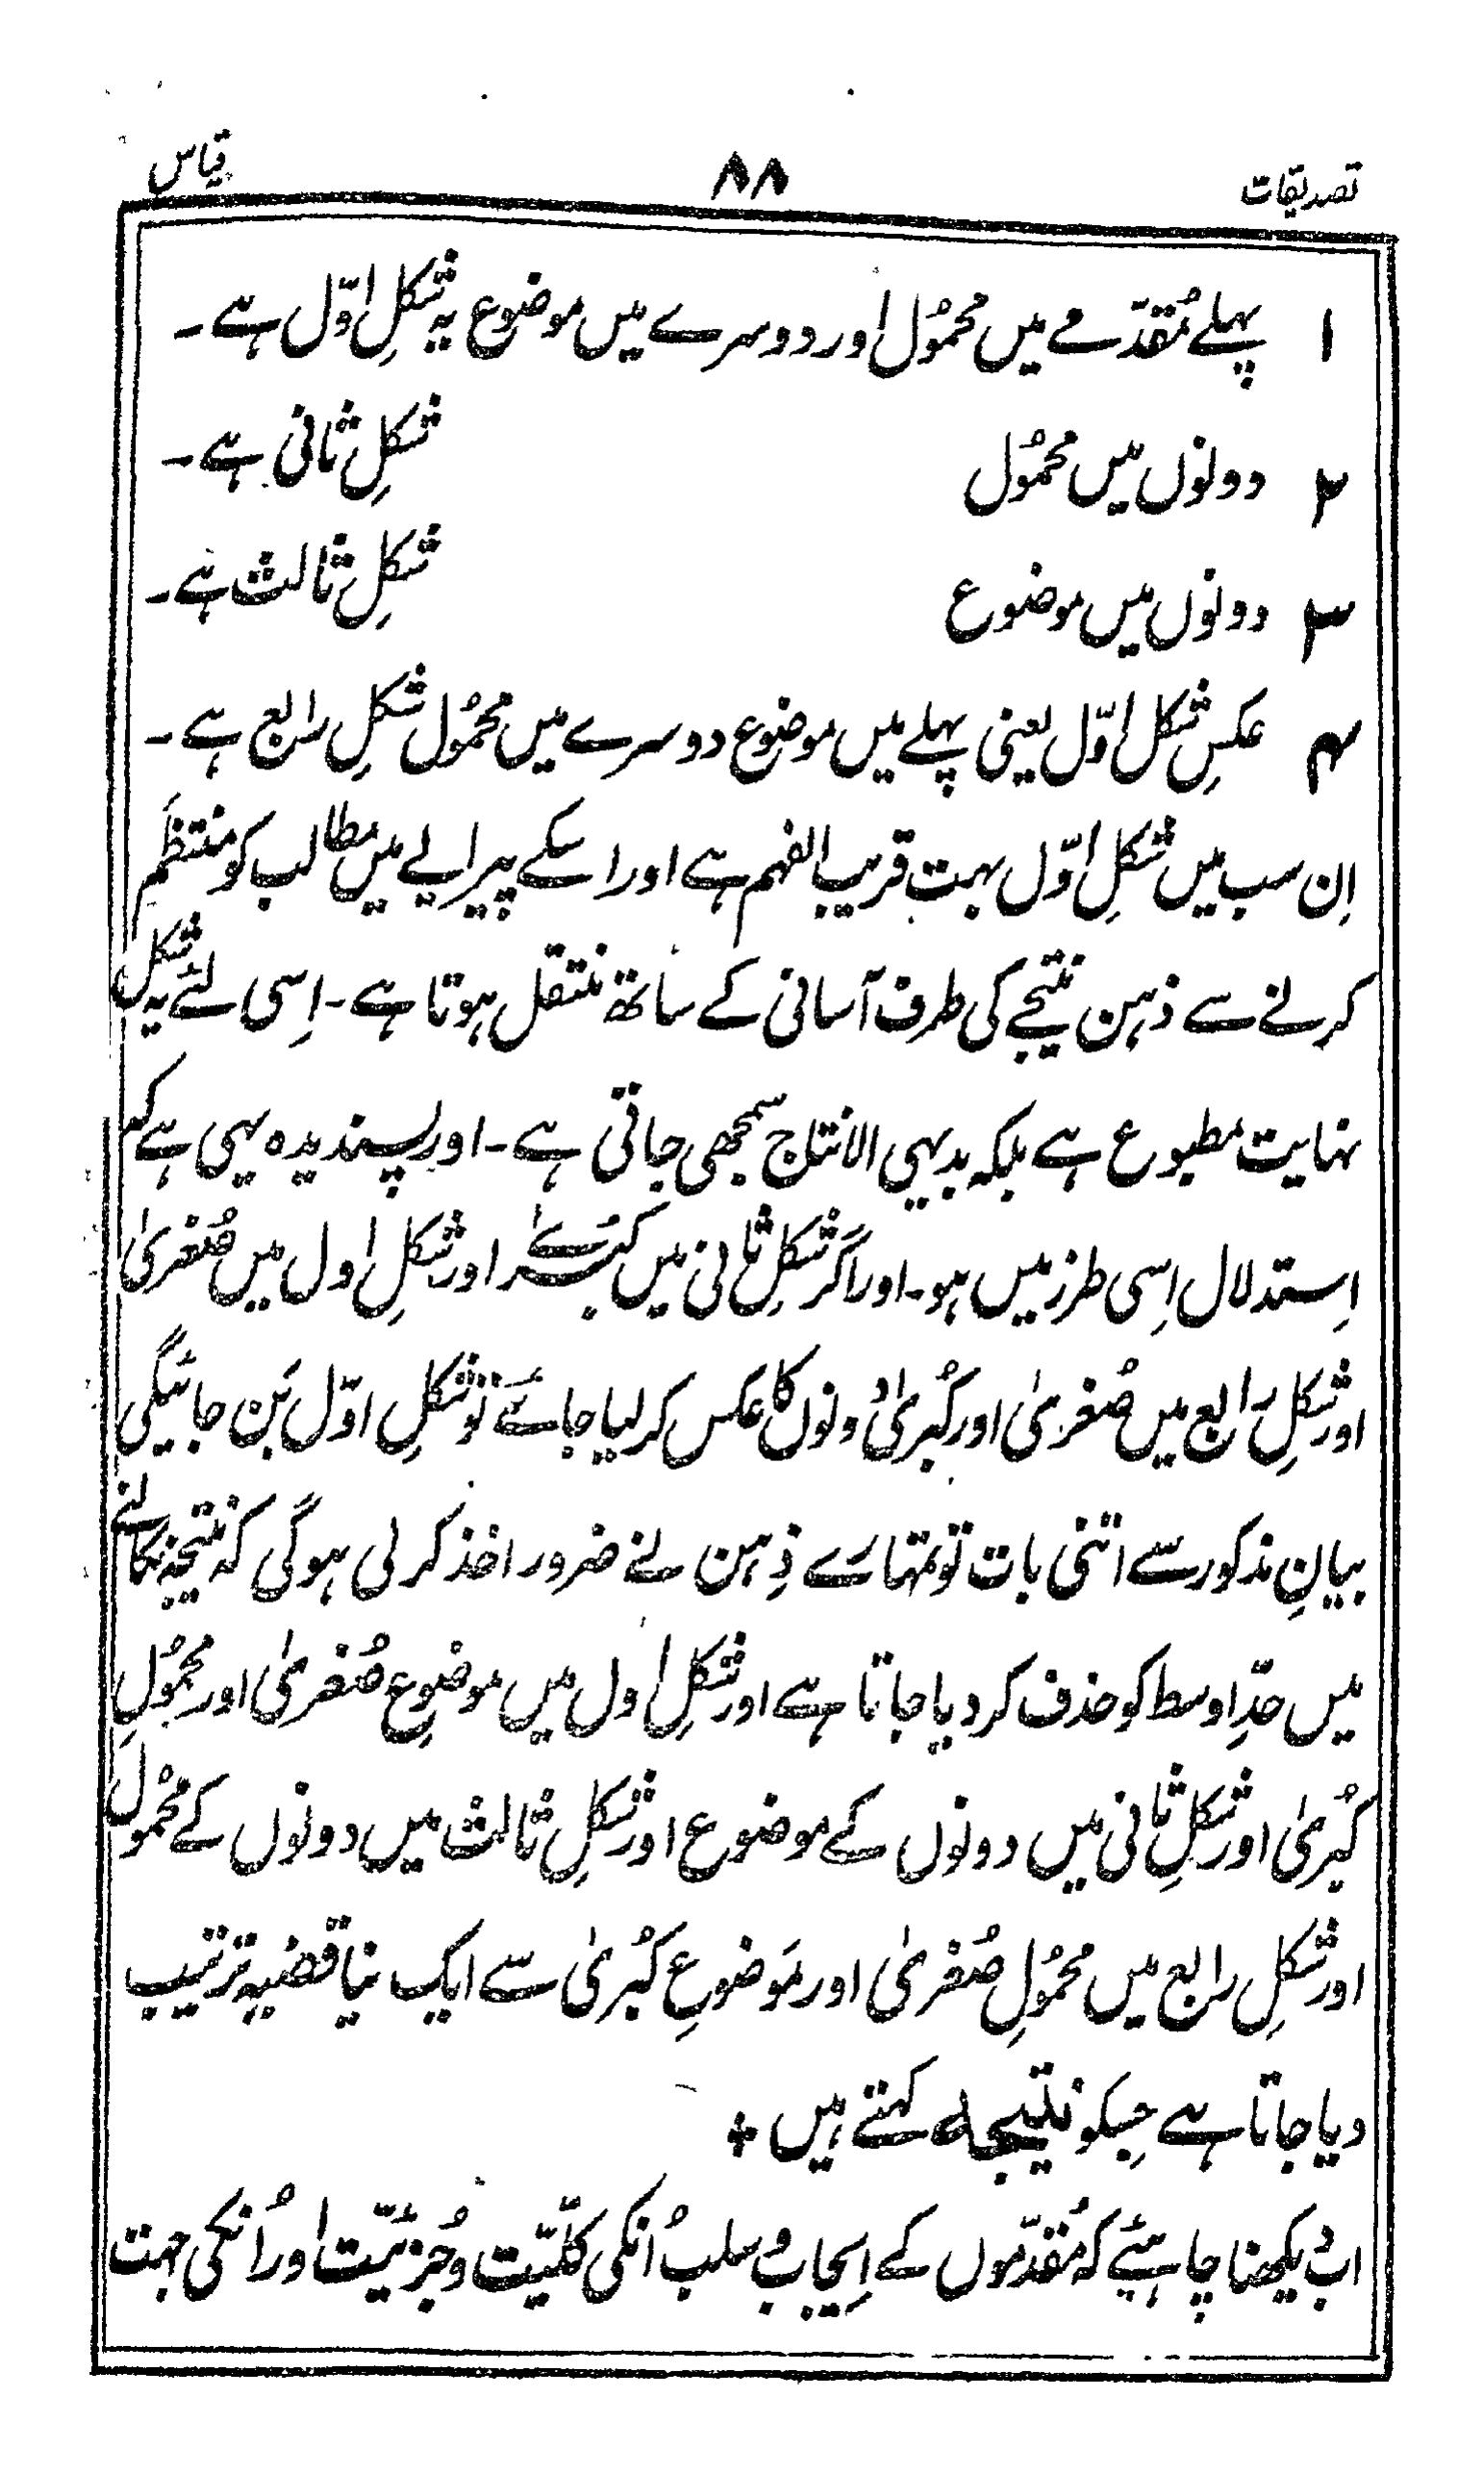 تصدیقات ۸۸ قیاس
۱ پہلے مُقدّمے میں محمُول اور دوسرے میں موضوع یہ شکلِ اوّل ہے۔
۲ دونوں میں محمُول شکلِ ثانی ہے۔
۳ دونوں میں موضوع شکلِ ثالث ہے۔
۴ عکسِ شکل اوّل یعنی پہلے میں موضوع دوسرے میں محمُول شکلِ رابع ہے۔
اِن سب میں شکلِ اوّل بہت قریب الفہم ہے اور اسکے پیرایے میں مطالب کو منتظَم
کرنے سے ذہن نتیجے کی طرف آسانی کے ساتھ منتقل ہوتا ہے۔ اِسی لئے یہ شکل
نہایت مطبوع ہے بلکہ بدیہی الانتاج سمجھی جاتی ہے۔ اور پسندیدہ یہی ہے کہ
اِستدلال اِسی طرز میں ہو۔ اور اگر شکلِ ثانی میں کبرےٰ اور شکلِ اول میں صُغریٰ
اور شکلِ رابع میں صُغریٰ اور کُبریٰ دونوں کا عکس کر لیا جائے تو شکلِ اوّل بَن جائیگی
بیانِ مذکور سے اتنی بات تو تمہارے ذِہن نے ضرور اخذ کر لی ہوگی کہ نتیجہ نکالنے
میں حدِّ اوسط کو حذف کر دیا جاتا ہے اور شکلِ اول میں موضوعِ صُغریٰ اور محمُولِ
کُبریٰ اور شکلِ ثانی میں دونوں کے موضوع اور شکلِ ثالث میں دونوں کے محمول
اور شکلِ رابع میں محمُولِ صُغریٰ اور مَوضوعِ کُبریٰ سے ایک نیا قضیہ ترتیب
دیا جاتا ہے جِسکو نتیجہ کہتے ہیں ٭
اب دیکھنا چاہئیے کہ مُقدّموں کے اِیجاب و سلب اُنکی کلّیّت و جُزئیّت اور اُنکی جہت